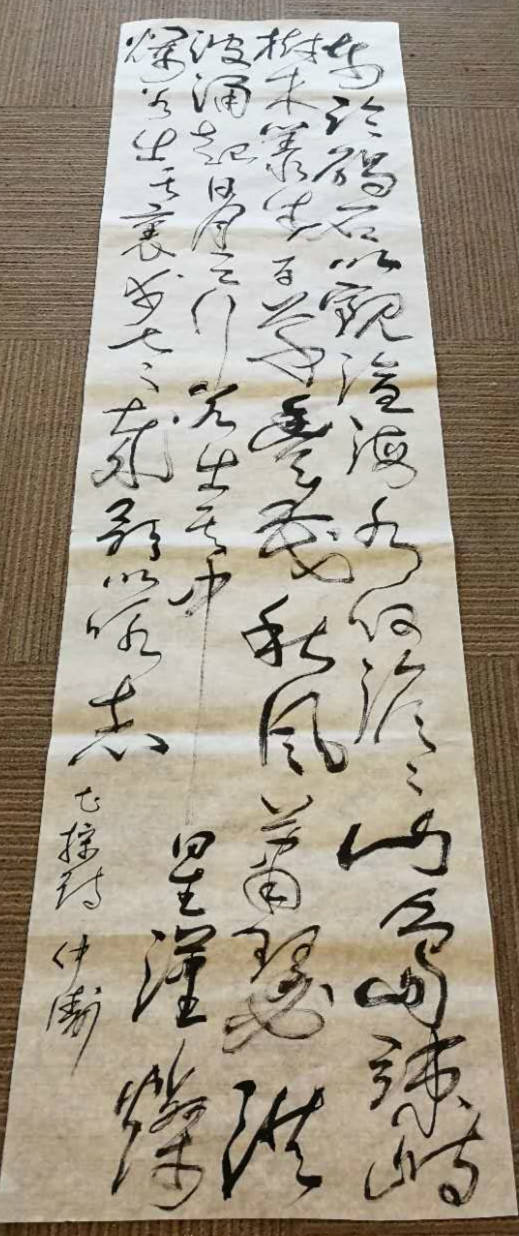 東臨碣石以觀滄海水何澹々山島竦峙
樹木叢生百草豐茂秋風蕭瑟洪
波涌起日月之行若出其中星漢燦
爛若出其裏幸甚至哉歌以詠志
操詩 仲